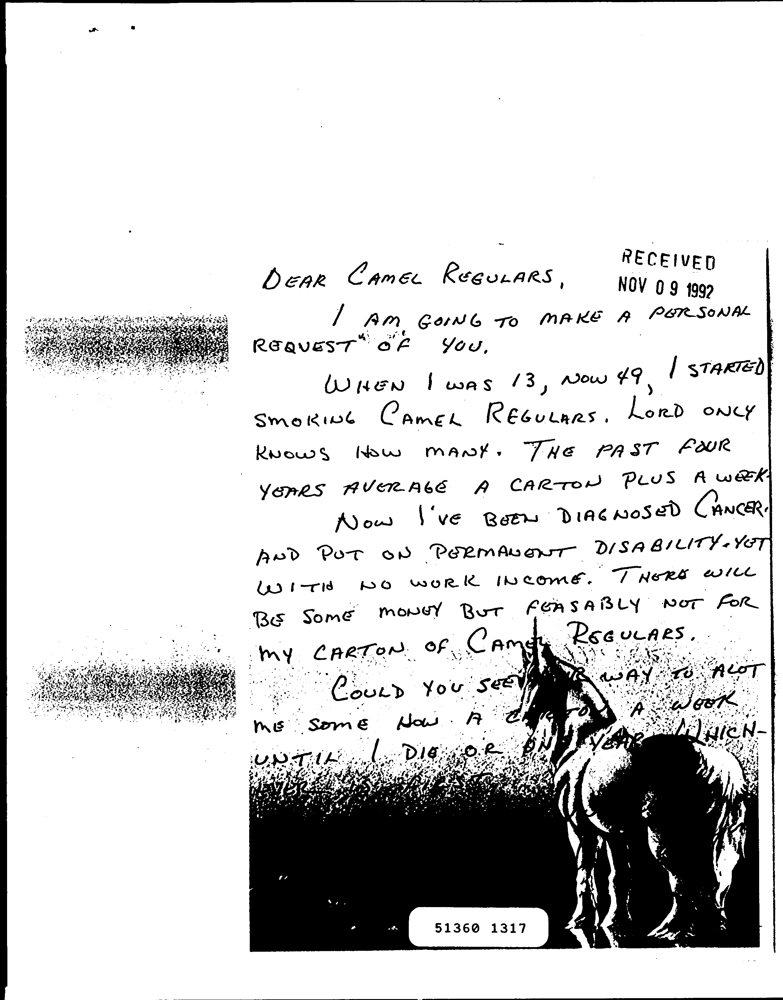 RECEIVED
NOV 09 1992
DEAR CAMEL REGULARS,
I AM GOING TO MAKE A PERSONAL
REQUEST OF YOU.
WHEN I WAS 13, NOW 49, I STARTED
SMOKING CAMEL REGULARS. LORD ONLY
KNOWS HOW MANY. THE PAST FOUR
YEARS AVERAGE A CARTON PLUS A WEEK.
NOW I'VE BEEN DIAGNOSED CANCER.
AND PUT ON PERMANENT DISABILITY. YET
WITH NO WORK INCOME. THERE WILL
BE SOME MONEY BUT FEASABLY NOT FOR
MY CARTON OF CAMEL REGULARS.
COULD YOU SEE WAY TO ALOT
ME SOME HOW A CARTON A WEEK
UNTIL I DIE OR YEAR WHICH-
51360 1317